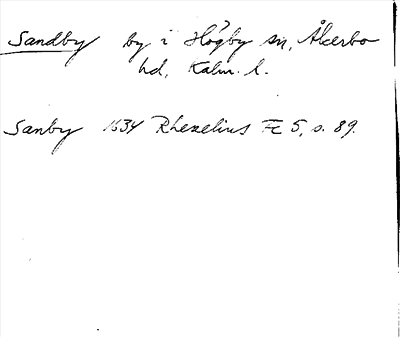 Sandby by i Högby sn, Åkerbo
hd, Kalm. l.
Sanby 1634 Rhezelius Fc 5, s. 89.